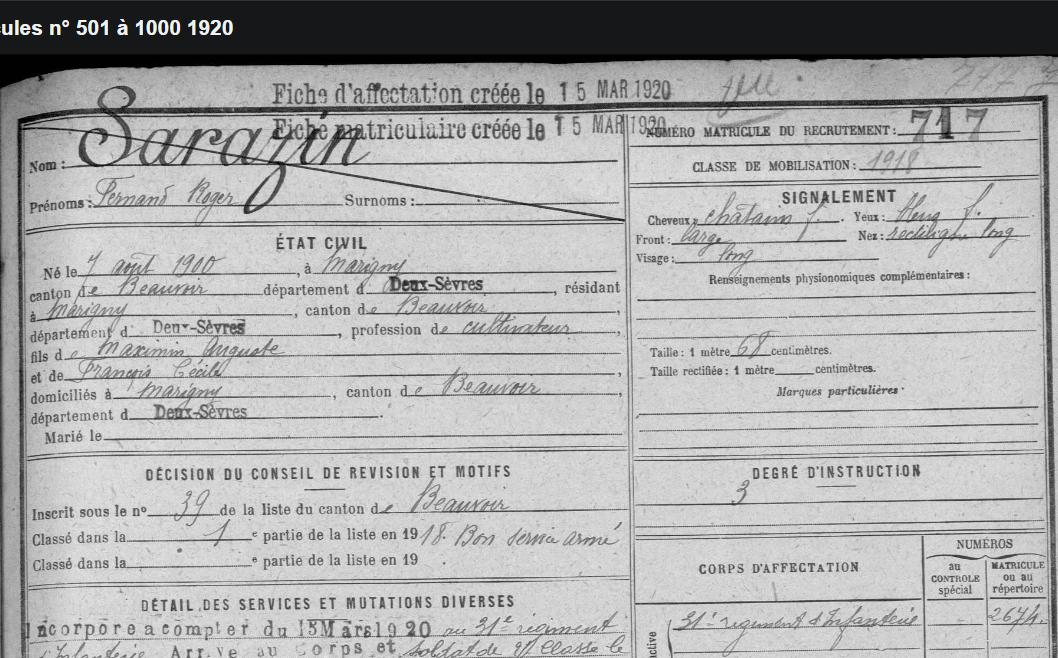 ules n° 501 à 1000 1920
Fiche d'affectation créée le 15 MAR 1920
Fiche matriculaire créée le 15 MAR 1920
Nom : Sarazin
Prénoms : Fernand Roger Surnoms :
ÉTAT CIVIL
Né le 7 août 1900, à Marigny
canton de Beauvoir département d Deux-Sèvres, résidant
à Marigny, canton de Beauvoir,
département d Deux-Sèvres, profession de cultivateur,
fils de Maximin Auguste
et de François Cécile,
domiciliés à Marigny, canton de Beauvoir,
département d Deux-Sèvres.
Marié le
DÉCISION DU CONSEIL DE REVISION ET MOTIFS
Inscrit sous le n° 39 de la liste du canton de Beauvoir
Classé dans la 1e partie de la liste en 1918. Bon service armé
Classé dans la e partie de la liste en 19
DÉTAIL DES SERVICES ET MUTATIONS DIVERSES
Incorporé à compter du 15 Mars 1920 au 31e régiment
d'Infanterie Arrivé au Corps et soldat de 2e classe le
717
NUMÉRO MATRICULE DU RECRUTEMENT : 717
CLASSE DE MOBILISATION : 1918
SIGNALEMENT
Cheveux : châtains f. Yeux : bleus f.
Front : large Nez : rectiligne long
Visage : long
Renseignements physionomiques complémentaires :
Taille : 1 mètre 68 centimètres.
Taille rectifiée : 1 mètre centimètres.
Marques particulières :
DEGRÉ D'INSTRUCTION
3
CORPS D'AFFECTATION
NUMÉROS
au CONTROLE spécial
MATRICULE ou au répertoire
active
31e régiment d'Infanterie 2674